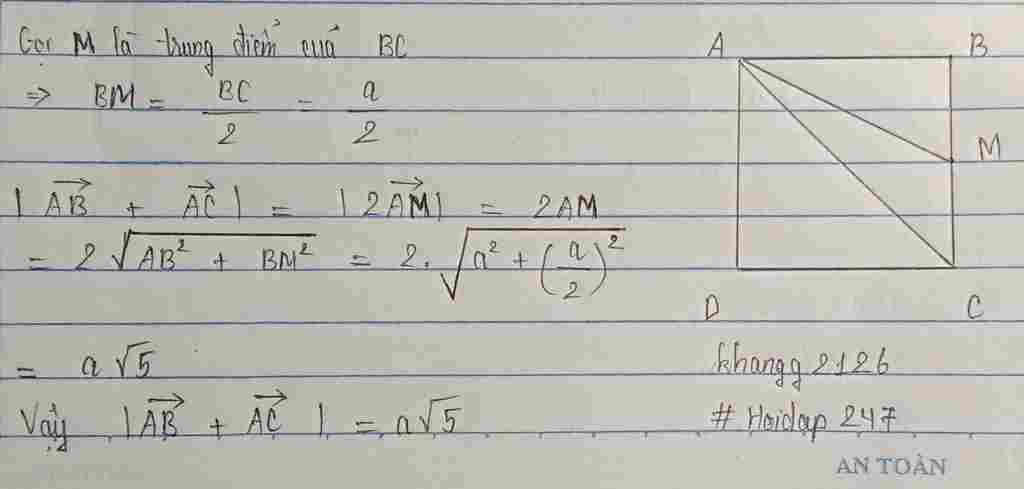 Gọi M là trung điểm của BC
⇒ BM = BC/2 = a/2
|\overrightarrow{AB} + \overrightarrow{AC}| = |2\overrightarrow{AM}| = 2AM
= 2√(AB² + BM²) = 2.√(a² + (a/2)²)
= a√5
Vậy |\overrightarrow{AB} + \overrightarrow{AC}| = a√5
A B
M
D C
khangg2126
# Hoidap 247
AN TOÀN